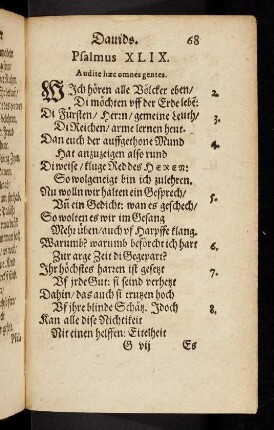 Dauids. 68
Psalmus XLIX.
Audite hæc omnes gentes.
MIch hören alle Völcker eben/ 2.
Di möchten vff der Erde lebē:
Di Fürsten/ Herrn/ gemeine Leuth/ 3.
Di Reichen/ arme lernen heut.
Dan euch der auffgethone Mund 4.
Hat anzuzeigen also rund
Di weise/ kluge Red des HEREN:
So wolgeneigt bin ich zulehren.
Nu wolln wir halten ein Gesprech/ 5.
Vñ ein Gedicht: wan es geschech/
So wolten es wir im Gesang
Mehr üben/ auch vf Harpffe klang.
Warumb? warumb beförcht ich hart 6.
Zur arge Zeit di Gegepart?
Ihr höchstes harren ist gesetzt 7.
Vf jrde Gut: si seind verhetzt
Dahin/ das auch si trutzen hoch
Vf jhre blinde Schätz. Jdoch 8.
Kan alle dise Nichtikeit
Mit einen helffen: Eitelheit
G vij Es